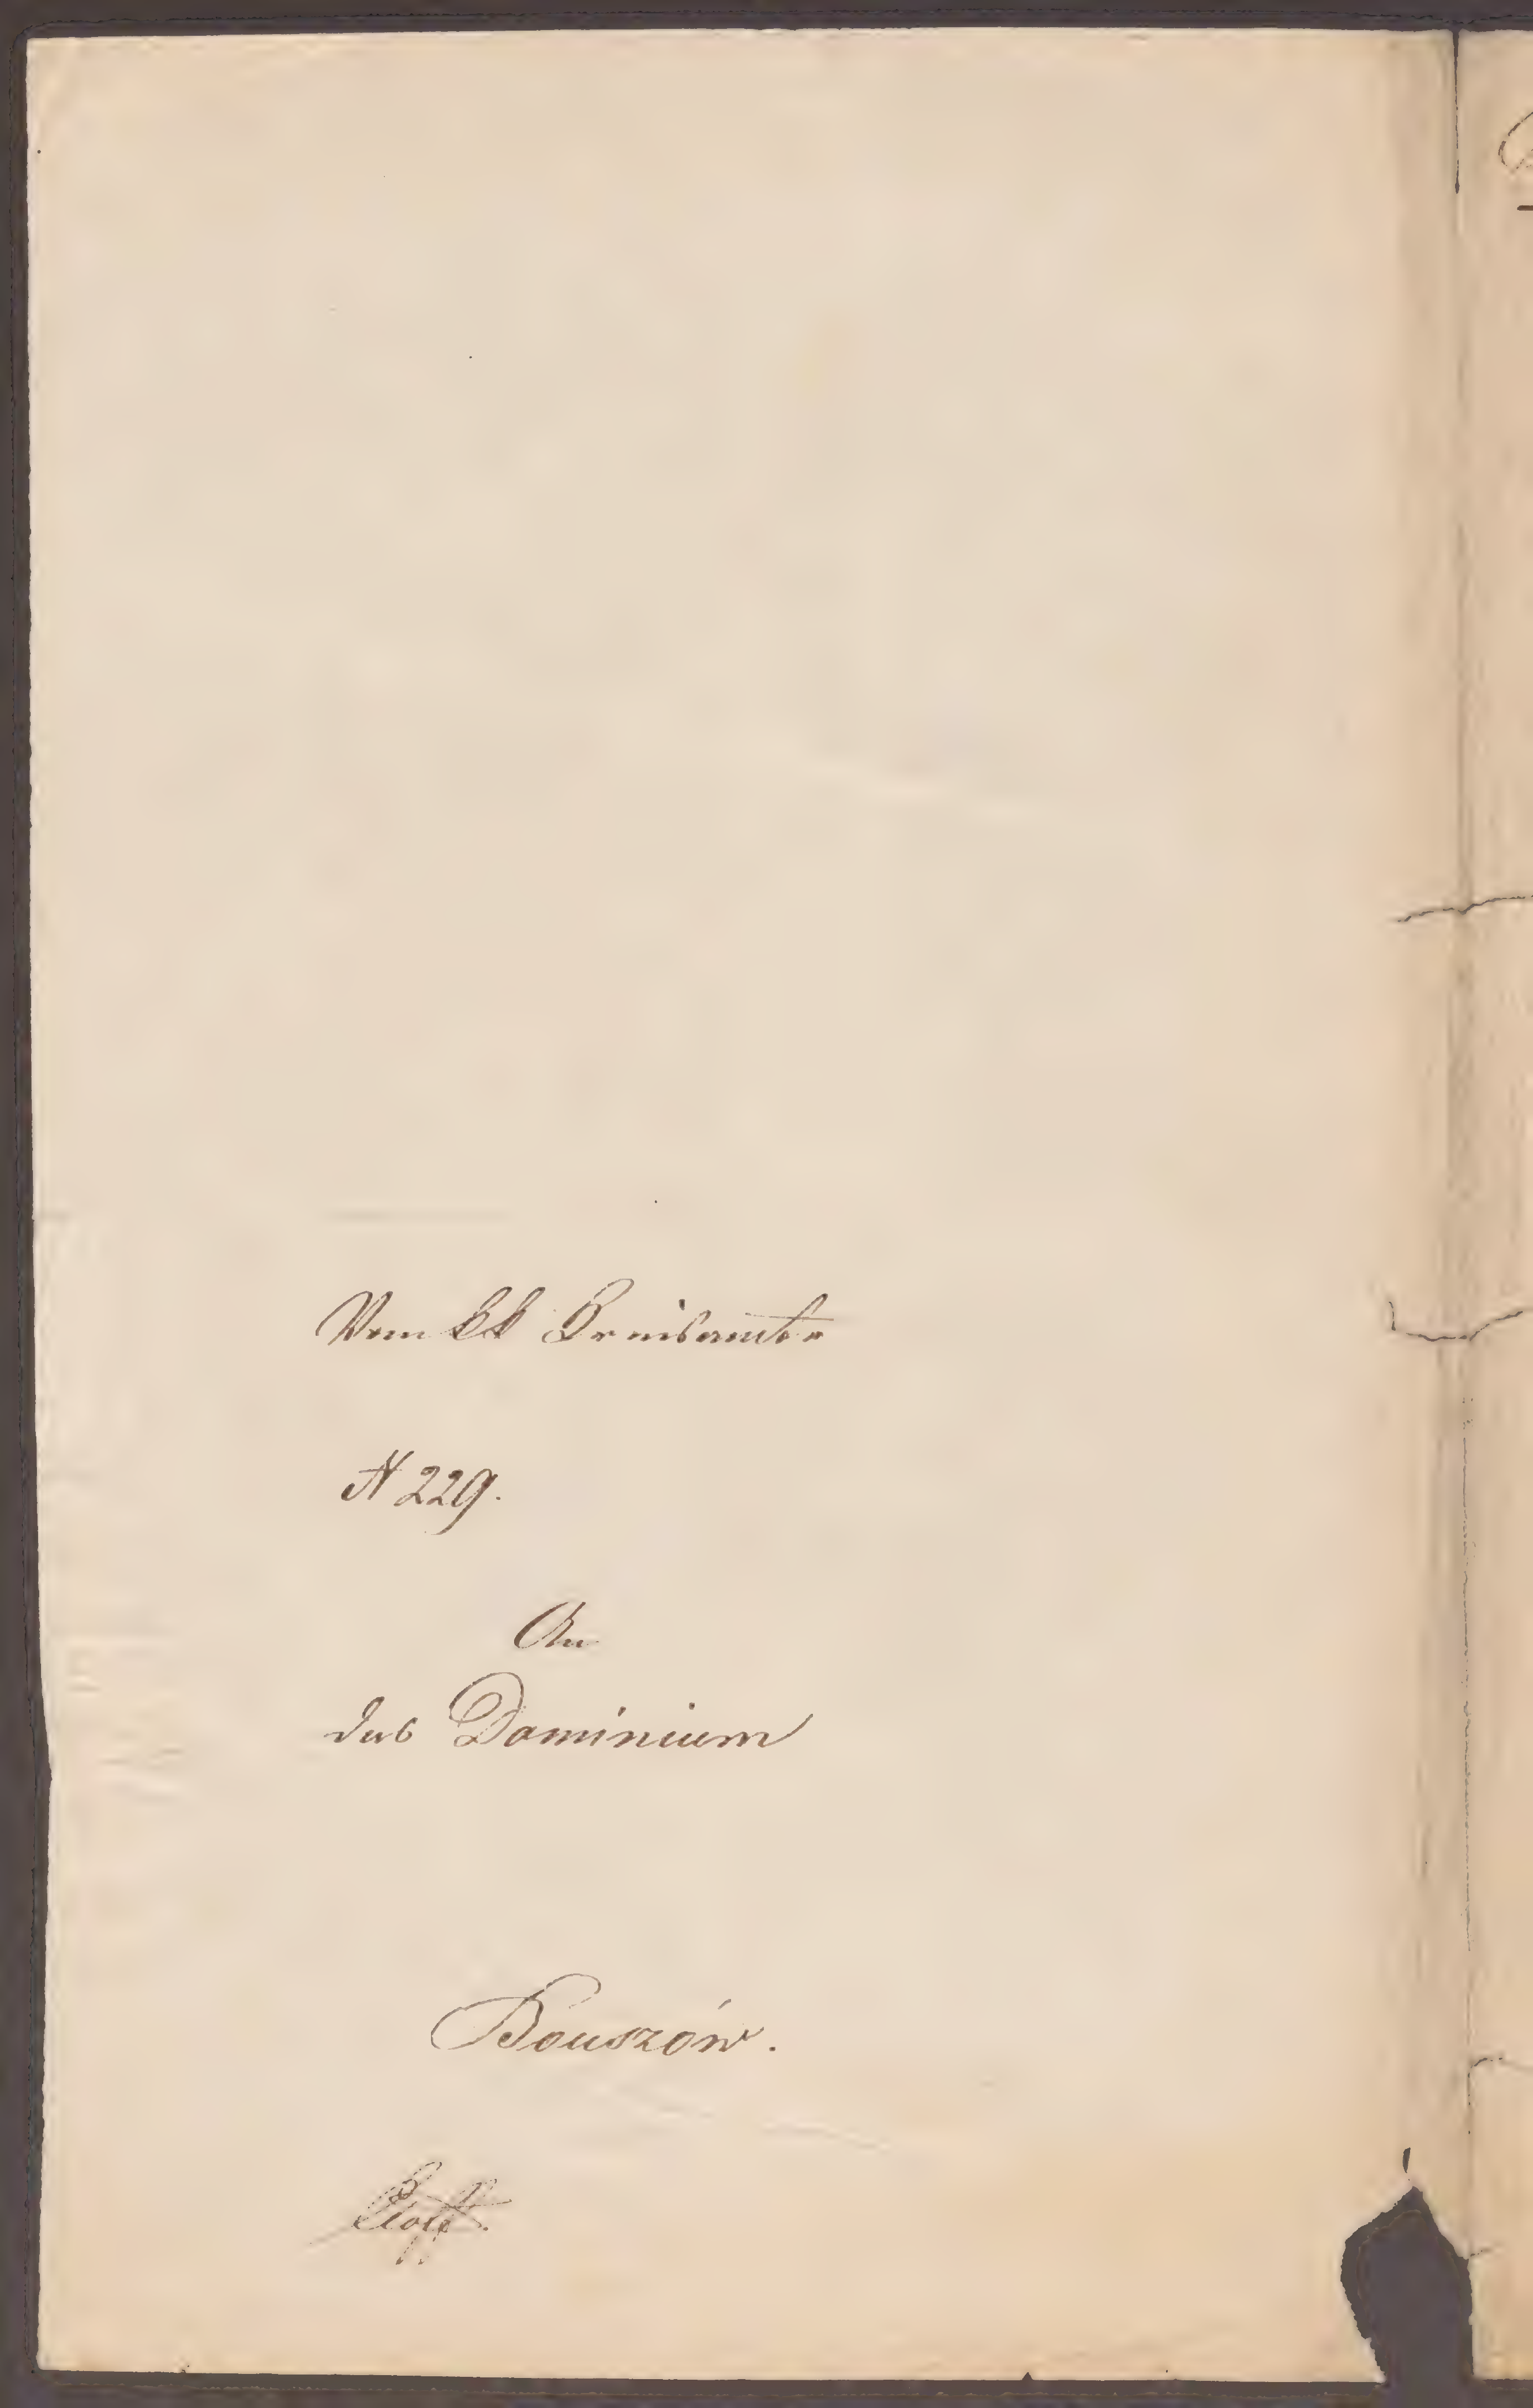 Vom kk Kreisamte
N 229.
An
das Dominium
Bouszów.